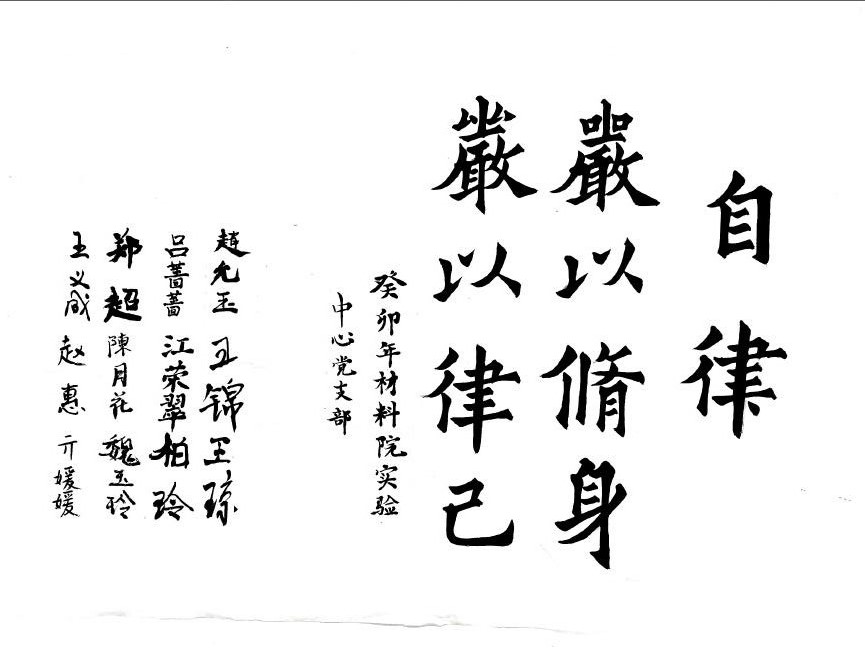 自律
嚴以脩身
嚴以律己
癸卯年材料院实验
中心党支部
趙允玉 王锦 王琼
吕蔷蔷 江荣翠 柏玲
郑超 陳月花 魏玉玲
王义成 赵惠 亓媛媛